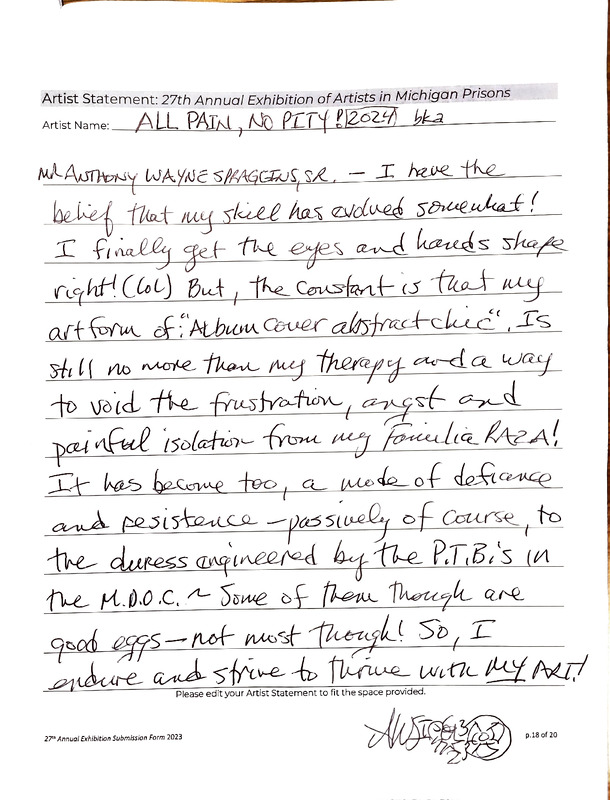 Artist Statement: 27th Annual Exhibition of Artists in Michigan Prisons
Artist Name: ALL PAIN, NO PITY! 2024 bka
MR ANTHONY WAYNE SPRAGGINS, SR. — I have the
belief that my skill has evolved somewhat!
I finally get the eyes and hands shape
right! (LOL) But, the constant is that my
art form of: "Album cover abstract chic". Is
still no more than my therapy and a way
to void the frustration, angst and
painful isolation from my Familia RAZA!
It has become too, a mode of defiance
and resistence – passively of course, to
the duress engineered by the P.T.B.'s in
the M.D.O.C. ~ Some of them though are
good eggs – not most though! So, I
endure and strive to thrive with MY ART!
Please edit your Artist Statement to fit the space provided.
27th Annual Exhibition Submission Form 2023
p.18 of 20